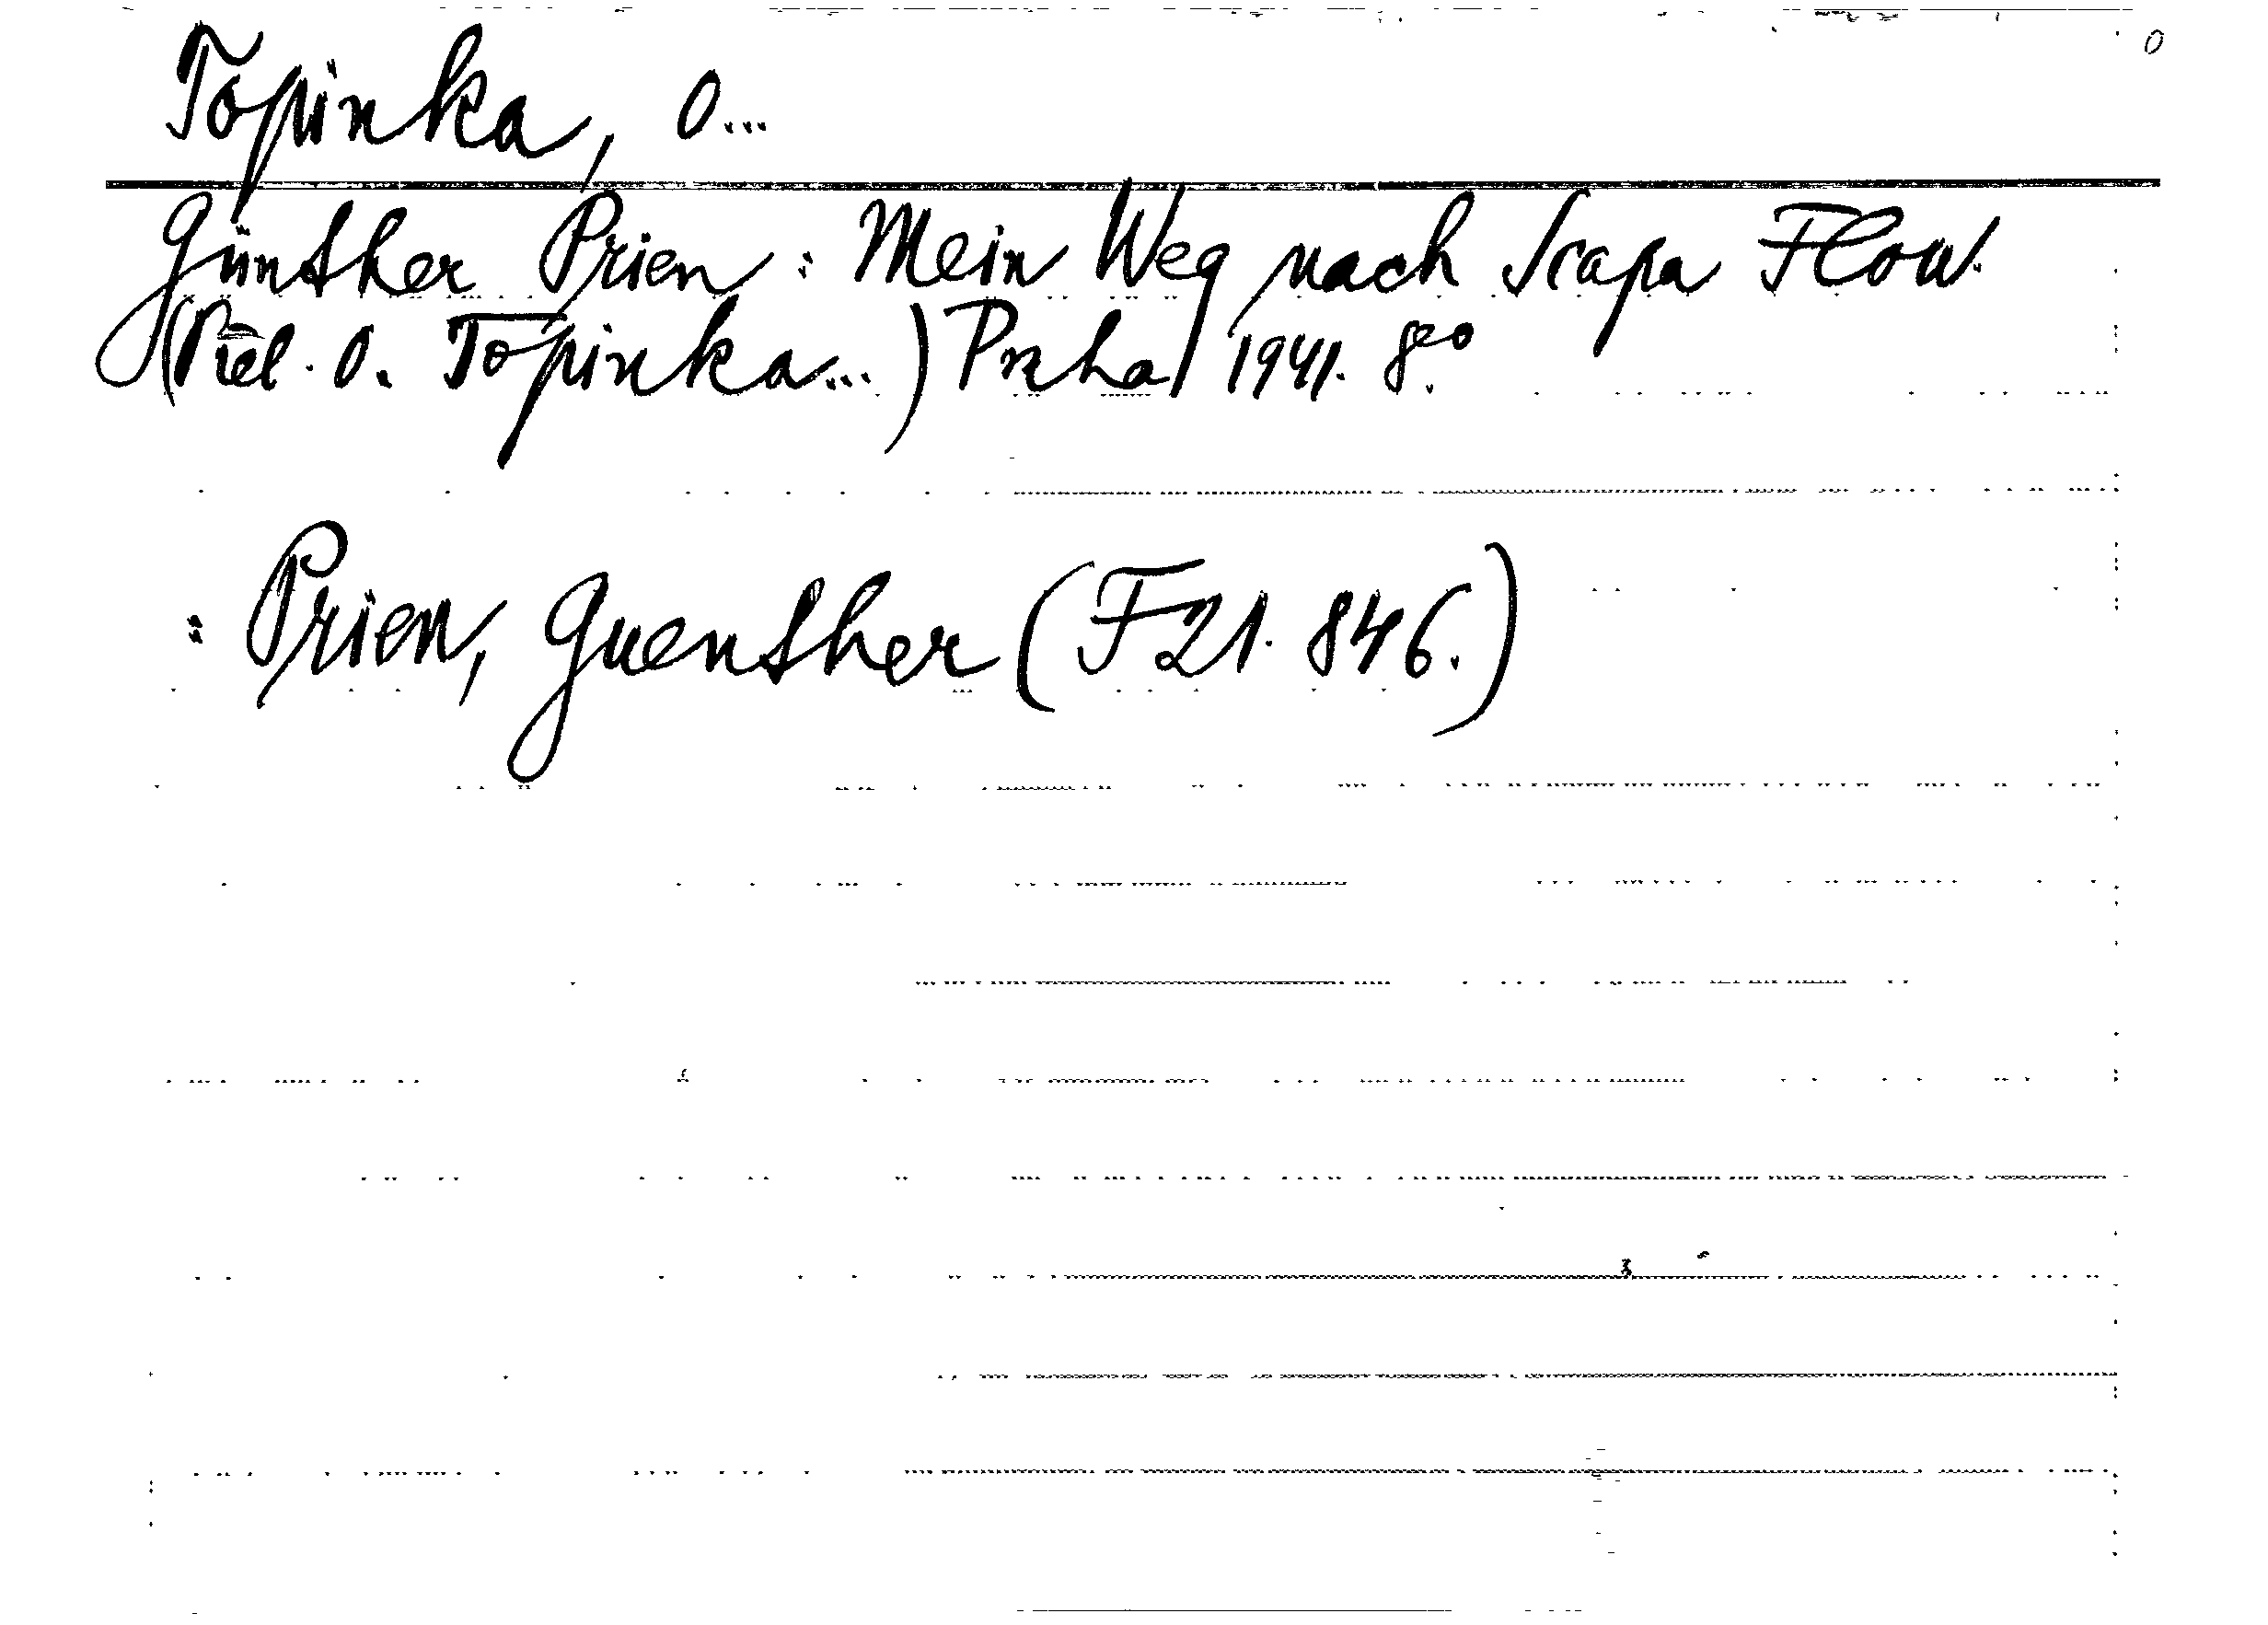 0
Topinka, O...
Günther Prien: Mein Weg nach Scapa Flow.
(Přel. O. Topinka...) Praha 1941. 8°
: Prien, Guenther (F 21.846.)